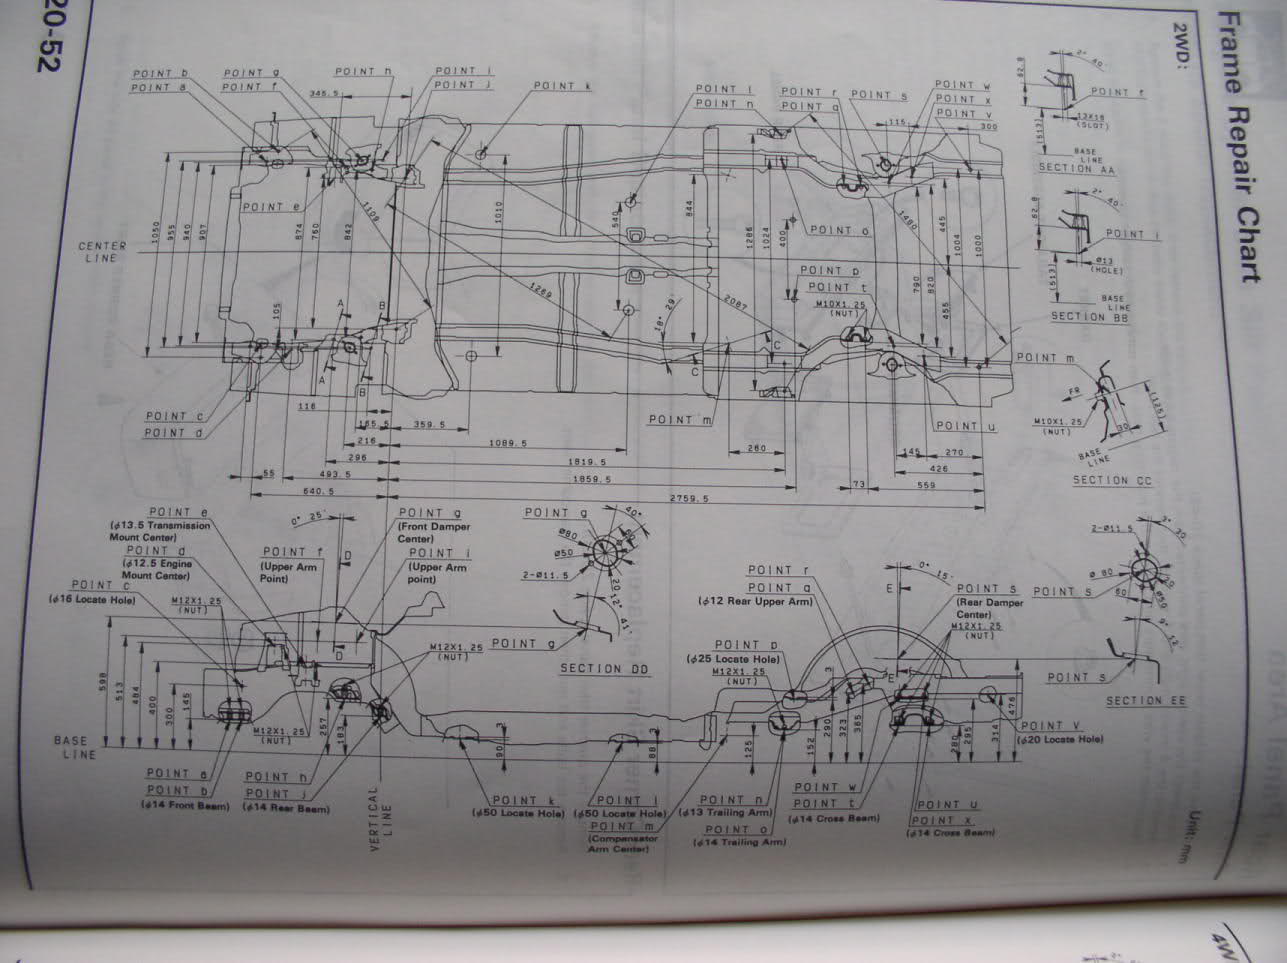 20-52
Frame Repair Chart
2WD:
Unit: mm
POINT b
POINT a
POINT g
POINT f
POINT h
POINT i
POINT j
POINT k
345.5
POINT l
POINT n
POINT r
POINT q
POINT s
POINT w
POINT x
POINT v
115
300
POINT e
CENTER
LINE
1050
955
940
907
874
760
842
105
1109
1010
1269
540
844
2087
18° 29'
1286
1024
400
POINT o
POINT p
POINT t
M10X1.25
(NUT)
1480
445
1004
1000
790
820
455
A
B
A
B
C
C
POINT c
POINT d
POINT m
POINT u
116
165.5
359.5
216
1089.5
260
296
1819.5
55
493.5
1859.5
640.5
2759.5
73
559
145
270
426
2°
40'
62.8
POINT f
13X18
(SLOT)
(513)
BASE
LINE
SECTION AA
2°
40'
62.8
POINT i
Ø13
(HOLE)
(513)
BASE
LINE
SECTION BB
POINT m
FR
M10X1.25
(NUT)
30
(125)
BASE
LINE
SECTION CC
POINT e
(φ13.5 Transmission
Mount Center)
POINT d
(φ12.5 Engine
Mount Center)
POINT c
(φ16 Locate Hole)
M12X1.25
(NUT)
0° 25'
D
D
POINT f
(Upper Arm
Point)
POINT g
(Front Damper
Center)
POINT i
(Upper Arm
point)
M12X1.25
(NUT)
POINT g
40°
Ø80
Ø50
2-Ø11.5
12°
41'
POINT g
SECTION DD
POINT r
POINT q
(φ12 Rear Upper Arm)
0° 15'
E
E
POINT s
(Rear Damper
Center)
M12X1.25
(NUT)
POINT p
(φ25 Locate Hole)
M12X1.25
(NUT)
2-Ø11.5
3° 30
POINT s
Ø 80
60
Ø50
9° 12'
POINT s
SECTION EE
598
513
484
400
300
145
BASE
LINE
M12X1.25
(NUT)
257
183
90
3
88
3
125
152
290
3
323
365
280
295
314
476
POINT v
(φ20 Locate Hole)
POINT a
POINT b
(φ14 Front Beam)
POINT h
POINT j
(φ14 Rear Beam)
VERTICAL
LINE
POINT k
(φ50 Locate Hole)
POINT l
(φ50 Locate Hole)
POINT m
(Compensator
Arm Center)
POINT n
(φ13 Trailing Arm)
POINT o
(φ14 Trailing Arm)
POINT w
POINT t
(φ14 Cross Beam)
POINT u
POINT x
(φ14 Cross Beam)
4W